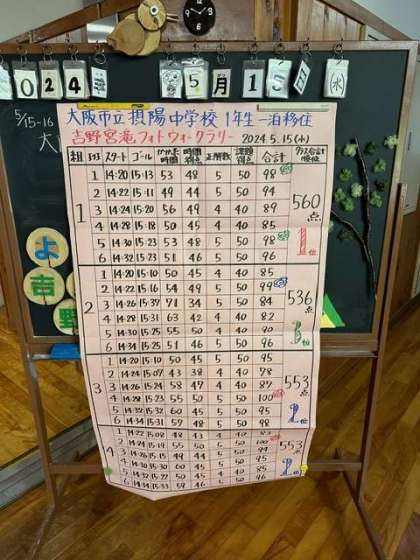 2024 5月15日(水)
5/15-16
大阪市立摂陽中学校 1年生 一泊移住
吉野宮滝フォトウォークラリー 2024.5.15(水)
組 班 スタート ゴール かかった時間 時間得点 正解数 課題得点 合計 クラス合計/順位
1
1 14:20 15:13 53 48 5 50 98
2 14:22 15:11 49 44 5 50 94
3 14:24 15:20 56 49 4 40 89
4 14:28 15:18 50 45 4 40 85
5 14:30 15:23 53 48 5 50 98
6 14:32 15:23 51 46 5 50 96
560点
1位
2
1 14:20 15:10 50 45 4 40 85
2 14:22 15:16 54 49 5 50 99
3 14:26 15:37 71 34 5 50 84
4 14:28 15:31 63 42 4 40 82
5 14:30 15:25 55 50 4 40 90
6 14:34 15:25 51 46 5 50 96
536点
3位
3
1 14:20 15:10 50 45 5 50 95
2 14:24 15:07 43 38 4 40 78
3 14:26 15:24 58 47 4 40 87
4 14:28 15:23 55 50 5 50 100
5 14:32 15:32 60 45 5 50 95
6 14:34 15:31 57 48 5 50 98
553点
2位
4
1 14:22 15:08 48 43 4 40 83
2 14:24 15:19 55 50 5 50 100
3 14:26 15:15 49 44 5 50 94
4 14:30 15:30 60 45 5 50 95
5 14:32 15:22 50 45 4 40 85
6 14:34 15:33 59 46 5 50 96
553点
2位
よ
吉
野